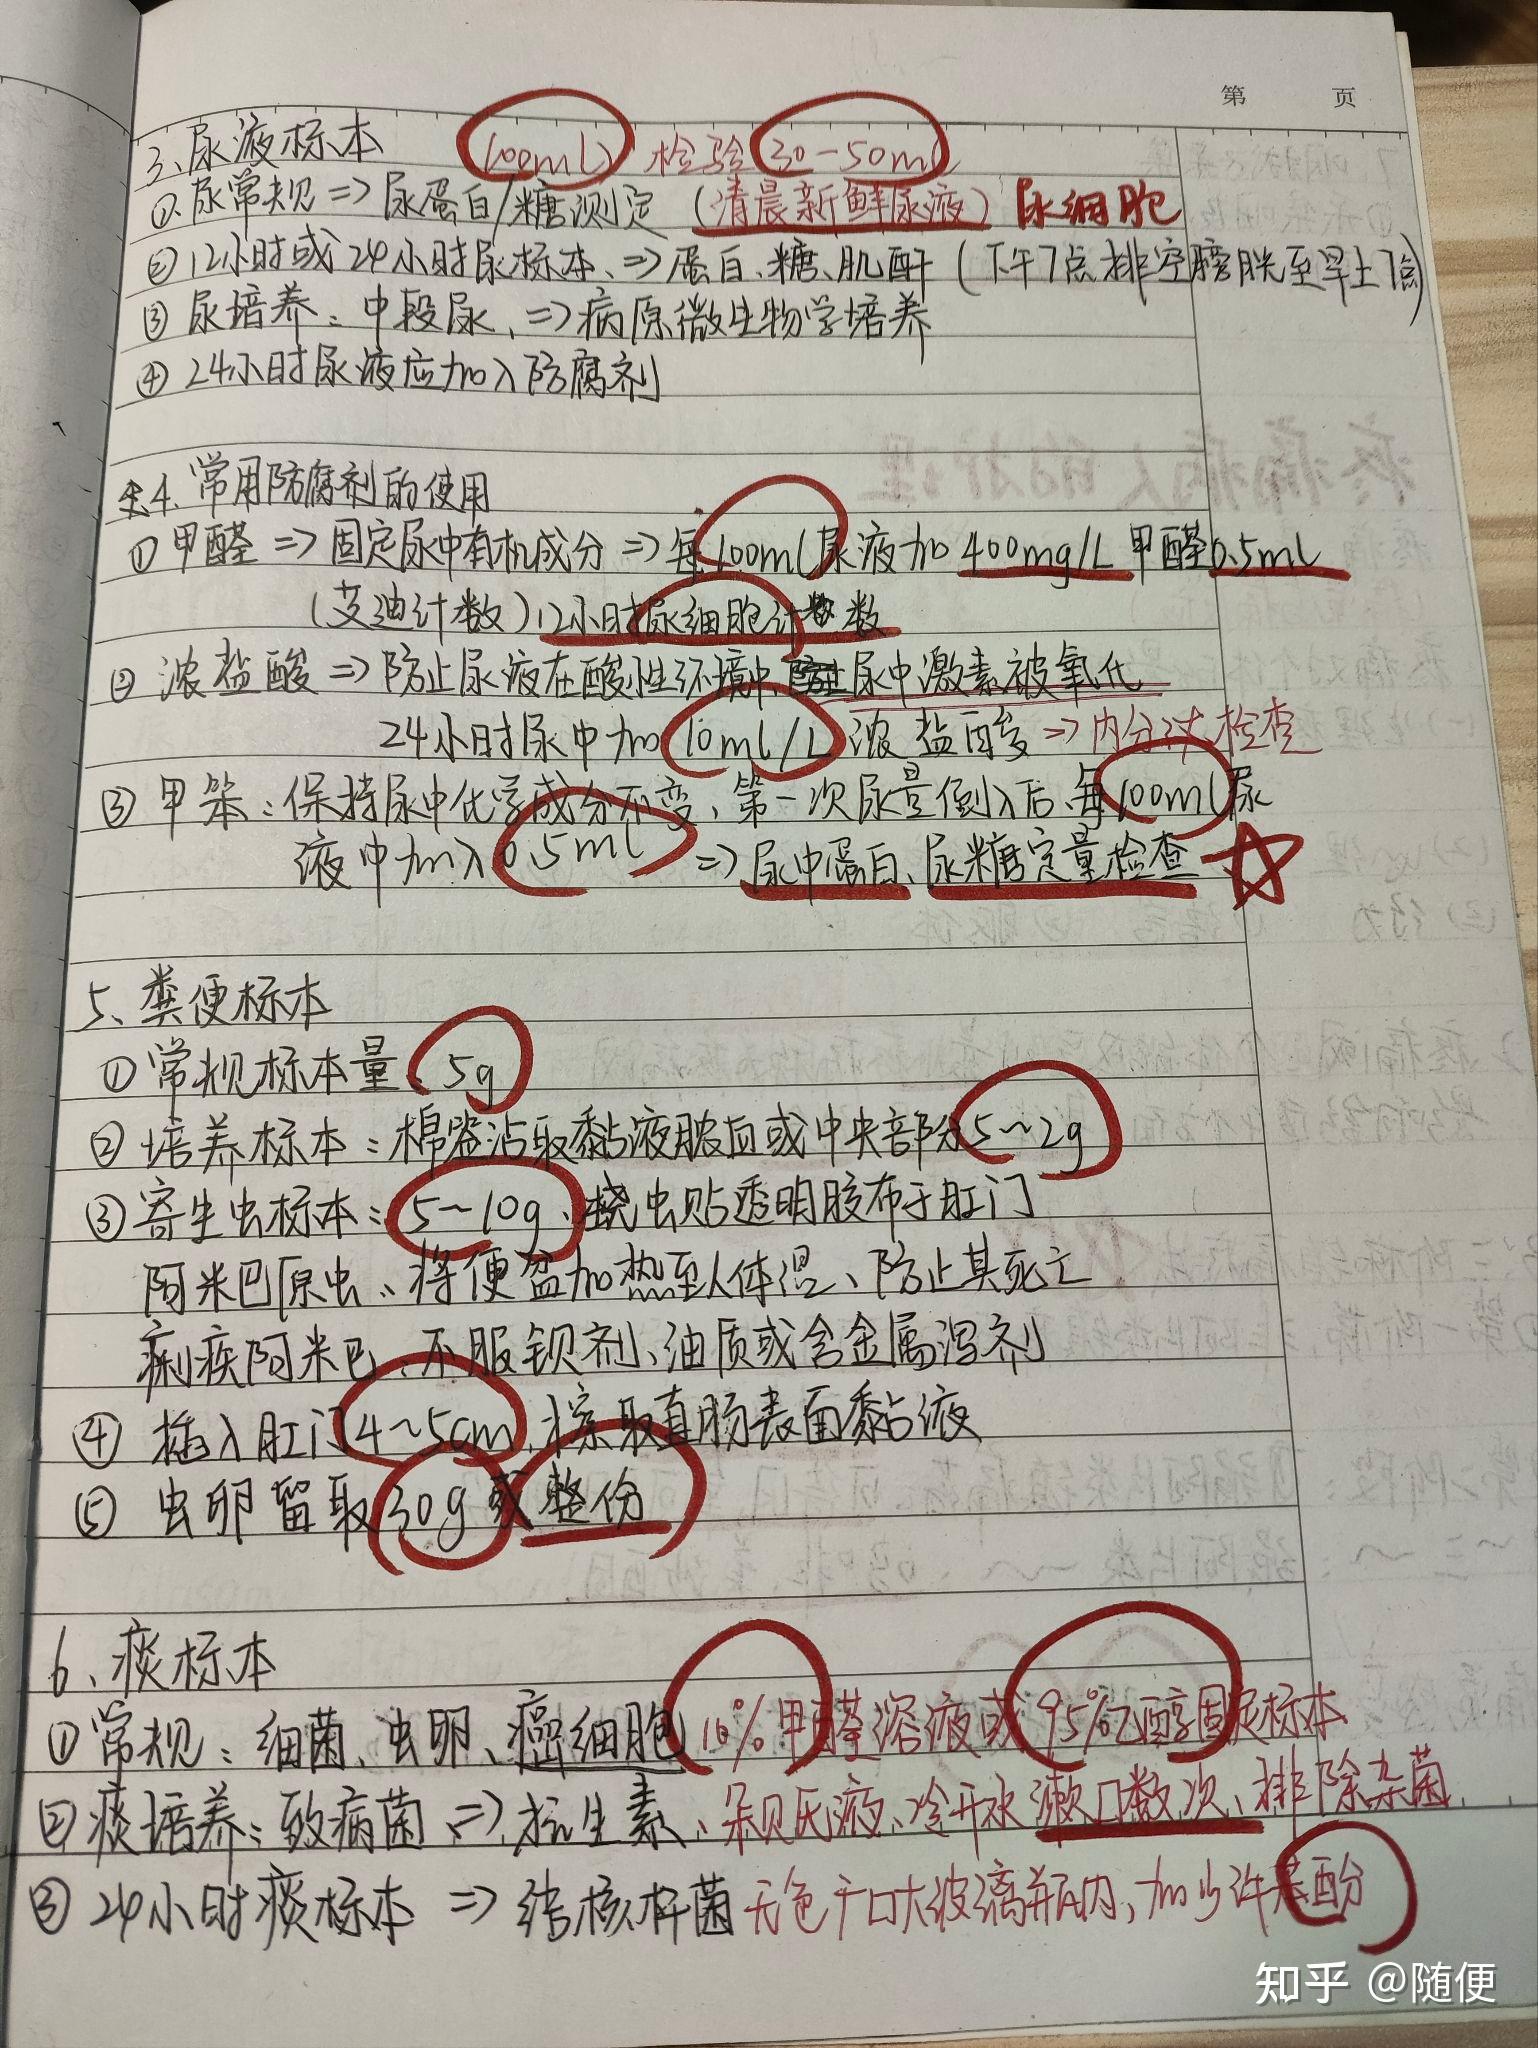 第 页
3、尿液标本 100ml 检验 30-50ml
①、尿常规 => 尿蛋白/糖测定 (清晨新鲜尿液) 尿细胞
② 12小时或24小时尿标本、=> 蛋白、糖、肌酐 (下午7点排空膀胱至早上7点)
③ 尿培养：中段尿、=> 病原微生物学培养
④ 24小时尿液应加入防腐剂
4. 常用防腐剂的使用
① 甲醛 => 固定尿中有机成分 => 每100ml尿液加400mg/L甲醛0.5ml
(艾迪计数) 12小时尿细胞计数
② 浓盐酸 => 防止尿液在酸性环境中 防止尿中激素被氧化
24小时尿中加10ml/L浓盐酸 => 内分泌检查
③ 甲笨：保持尿中化学成分不变、第一次尿量倒入后、每100ml尿
液中加入0.5ml => 尿中蛋白、尿糖定量检查
5、粪便标本
① 常规标本量、5g
② 培养标本：棉签沾取黏液脓血或中央部分5~2g
③ 寄生虫标本：5~10g、蛲虫贴透明胶布于肛门
阿米巴原虫、将便盆加热至人体温、防止其死亡
痢疾阿米巴、不服钡剂、油质或含金属泻剂
④ 插入肛门4~5cm、擦取直肠表面黏液
⑤ 虫卵留取30g或整份
6、痰标本
① 常规：细菌、虫卵、癌细胞 10%甲醛溶液或95%乙醇固定标本
② 痰培养：致病菌 => 抗生素、朵贝氏液、冷开水漱口数次、排除杂菌
③ 24小时痰标本 => 结核杆菌 无色广口大玻璃瓶内、加少许苯酚
知乎 @随便